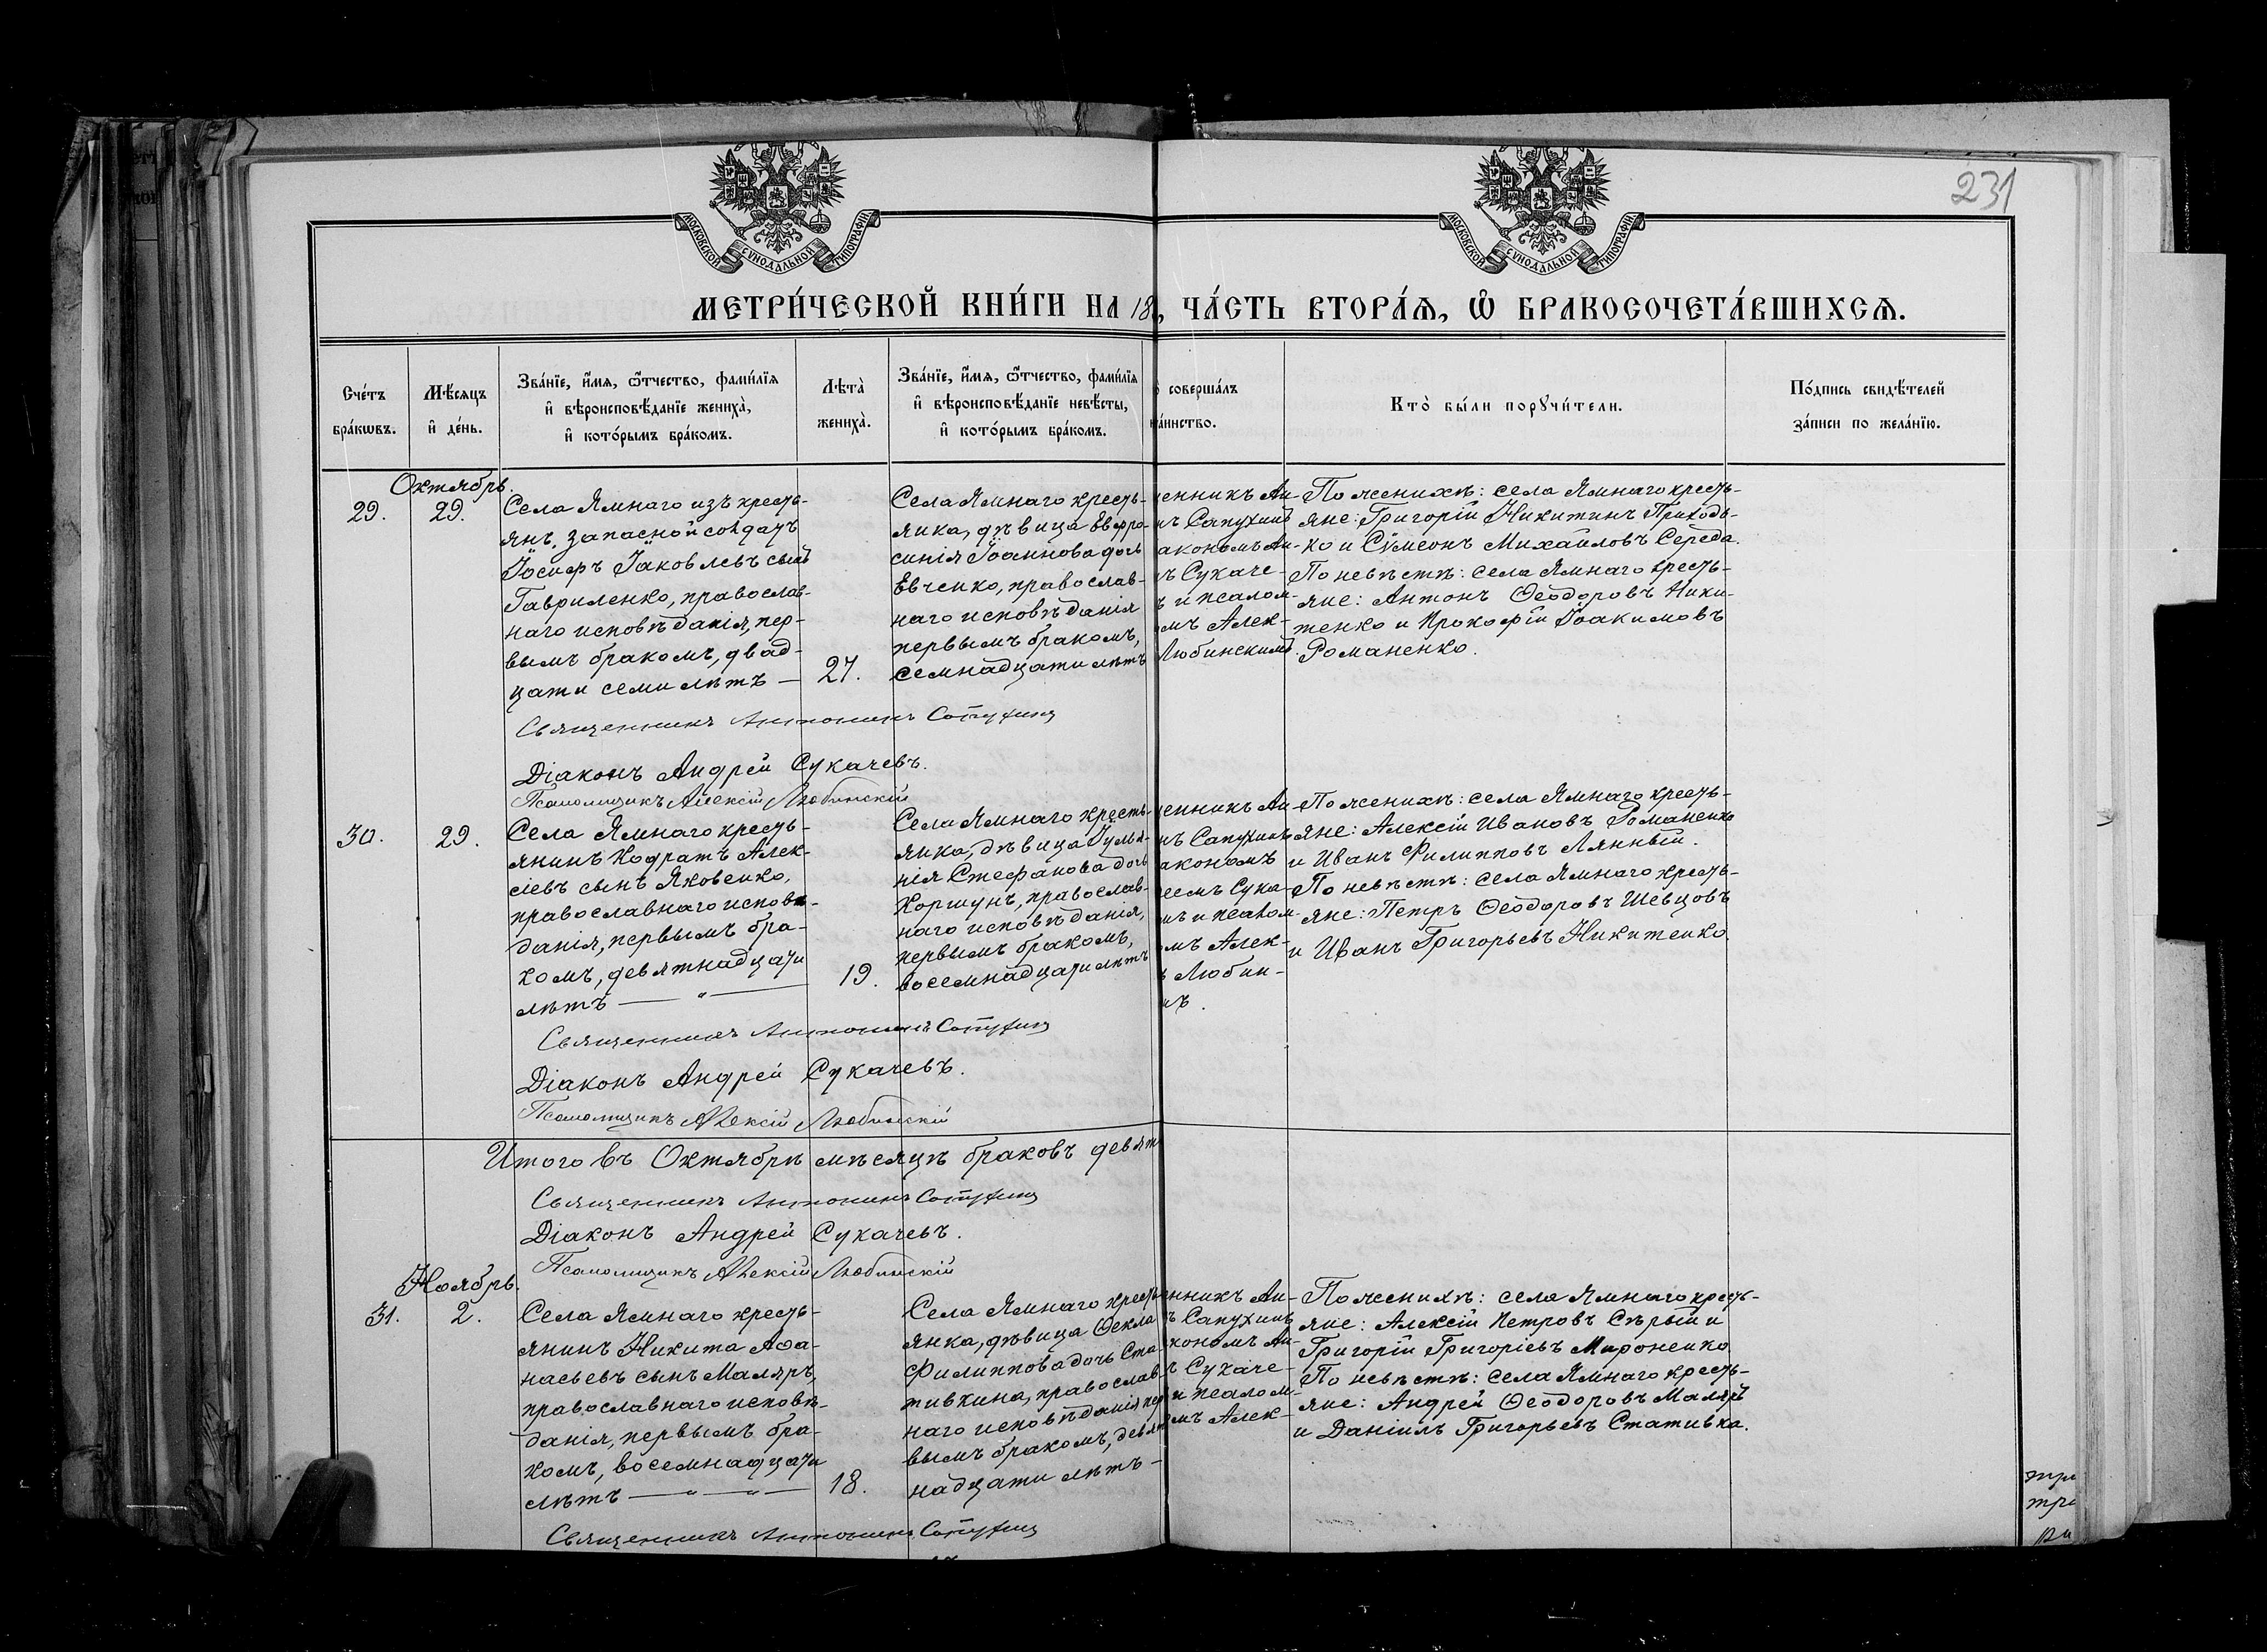 231
МОСКОВСКОЙ СѴНОДАЛЬНОЙ ТИПОГРАФІИ
МОСКОВСКОЙ СѴНОДАЛЬНОЙ ТИПОГРАФІИ
МЕТРИ́ЧЕСКОЙ КНИ́ГИ НА 18
, ЧА́СТЬ ВТОРА́Ѧ, Ѽ БРАКОСОЧЕТА́ВШИХСѦ.
Сче́тъ
бра́кѡвъ.
Мѣ́сѧцъ
и҆ де́нь.
Зва́нїе, и҆́мѧ, ѻ҆́тчество, фами́лїѧ
и҆ вѣроисповѣ́данїе жениха̀,
и҆ кото́рымъ бра́комъ.
Лѣта̀
жениха̀.
Зва́нїе, и҆́мѧ, ѻ҆́тчество, фами́лїѧ
и҆ вѣроисповѣ́данїе невѣ́сты,
и҆ кото́рымъ бра́комъ.
совершалъ
та́инство.
Кто̀ бы́ли порꙋчи́тели.
По́дпись свидѣ́телей
за́писи по жела́нїю.
Октябрь.
29.
29.
Села Ямнаго изъ кресть-
янъ, запасной солдатъ
Іосифъ Іаковлевъ сынъ
Гавриленко, православ-
наго исповѣданія, пер-
вымъ бракомъ, двад-
цати семи лѣтъ —
27.
Села Ямнаго кресть-
янка, дѣвица Евфро-
синія Іоаннова дочь
Евченко, православ-
наго исповѣданія
первымъ бракомъ,
семнадцати лѣтъ
енникъ Ан-
нъ Сапухинъ
акономъ Ан-
ъ Сукаче-
ъ и псалом-
омъ Алек-
Любинскимъ.
По женихѣ: села Ямнаго кресть-
яне: Григорій Никитинъ Приходь-
ко и Сѵмеонъ Михаиловъ Середа.
По невѣстѣ: села Ямнаго кресть-
яне: Антонъ Ѳеодоровъ Ники-
тенко и Прокофій Іоакимовъ
Романенко.
Священникъ Антонинъ Сапухинъ
Діаконъ Андрей Сукачевъ.
Псаломщикъ Алексій Любинскій
30.
29.
Села Ямнаго кресть-
янинъ Кодратъ Алек-
сіевъ сынъ Яковенко,
православнаго исповѣ-
данія, первымъ бра-
комъ, девятнадцати
лѣтъ — " —
19.
Села Ямнаго кресть-
янка, дѣвица Іуліа-
нія Стефанова дочь
Коршунъ, православ-
наго исповѣданія,
первымъ бракомъ,
восемнадцати лѣтъ
енникъ Ан-
нъ Сапухинъ
акономъ
еемъ Сука-
мъ и псалом-
омъ Алек-
ъ Любин-
мъ.
По женихѣ: села Ямнаго кресть-
яне: Алексій Ивановъ Романенко
и Иванъ Филипповъ Лянный.
По невѣстѣ: села Ямнаго кресть-
яне: Петръ Ѳеодоровъ Шевцовъ
и Иванъ Григорьевъ Никитенко.
Священникъ Антонинъ Сапухинъ
Діаконъ Андрей Сукачевъ.
Псаломщикъ Алексій Любинскій
Итого въ Октябрѣ мѣсяцѣ браковъ девят
Священникъ Антонинъ Сапухинъ
Діаконъ Андрей Сукачевъ.
Псаломщикъ Алексій Любинскій
Ноябрь.
31.
2.
Села Ямнаго кресть-
янинъ Никита Аѳа-
насьевъ сынъ Маляръ,
православнаго исповѣ-
данія, первымъ бра-
комъ, восемнадцати
лѣтъ — " — " —
18.
Села Ямнаго кресть
янка, дѣвица Ѳекла
Филиппова дочь Ста-
тивкина, православ
наго исповѣданія пер
вымъ бракомъ, девят
надцати лѣтъ -
нникъ Ан-
ъ Сапухинъ
кономъ Ан-
ъ Сукаче-
и псалом-
мъ Алек-
По женихѣ: села Ямнаго кресть-
яне: Алексій Петровъ Сѣрый и
Григорій Григоріевъ Мироненко
По невѣстѣ: села Ямнаго кресть-
яне: Андрей Ѳеодоровъ Маляръ
и Даніилъ Григорьевъ Стативка.
Священникъ Антонинъ Сапухинъ